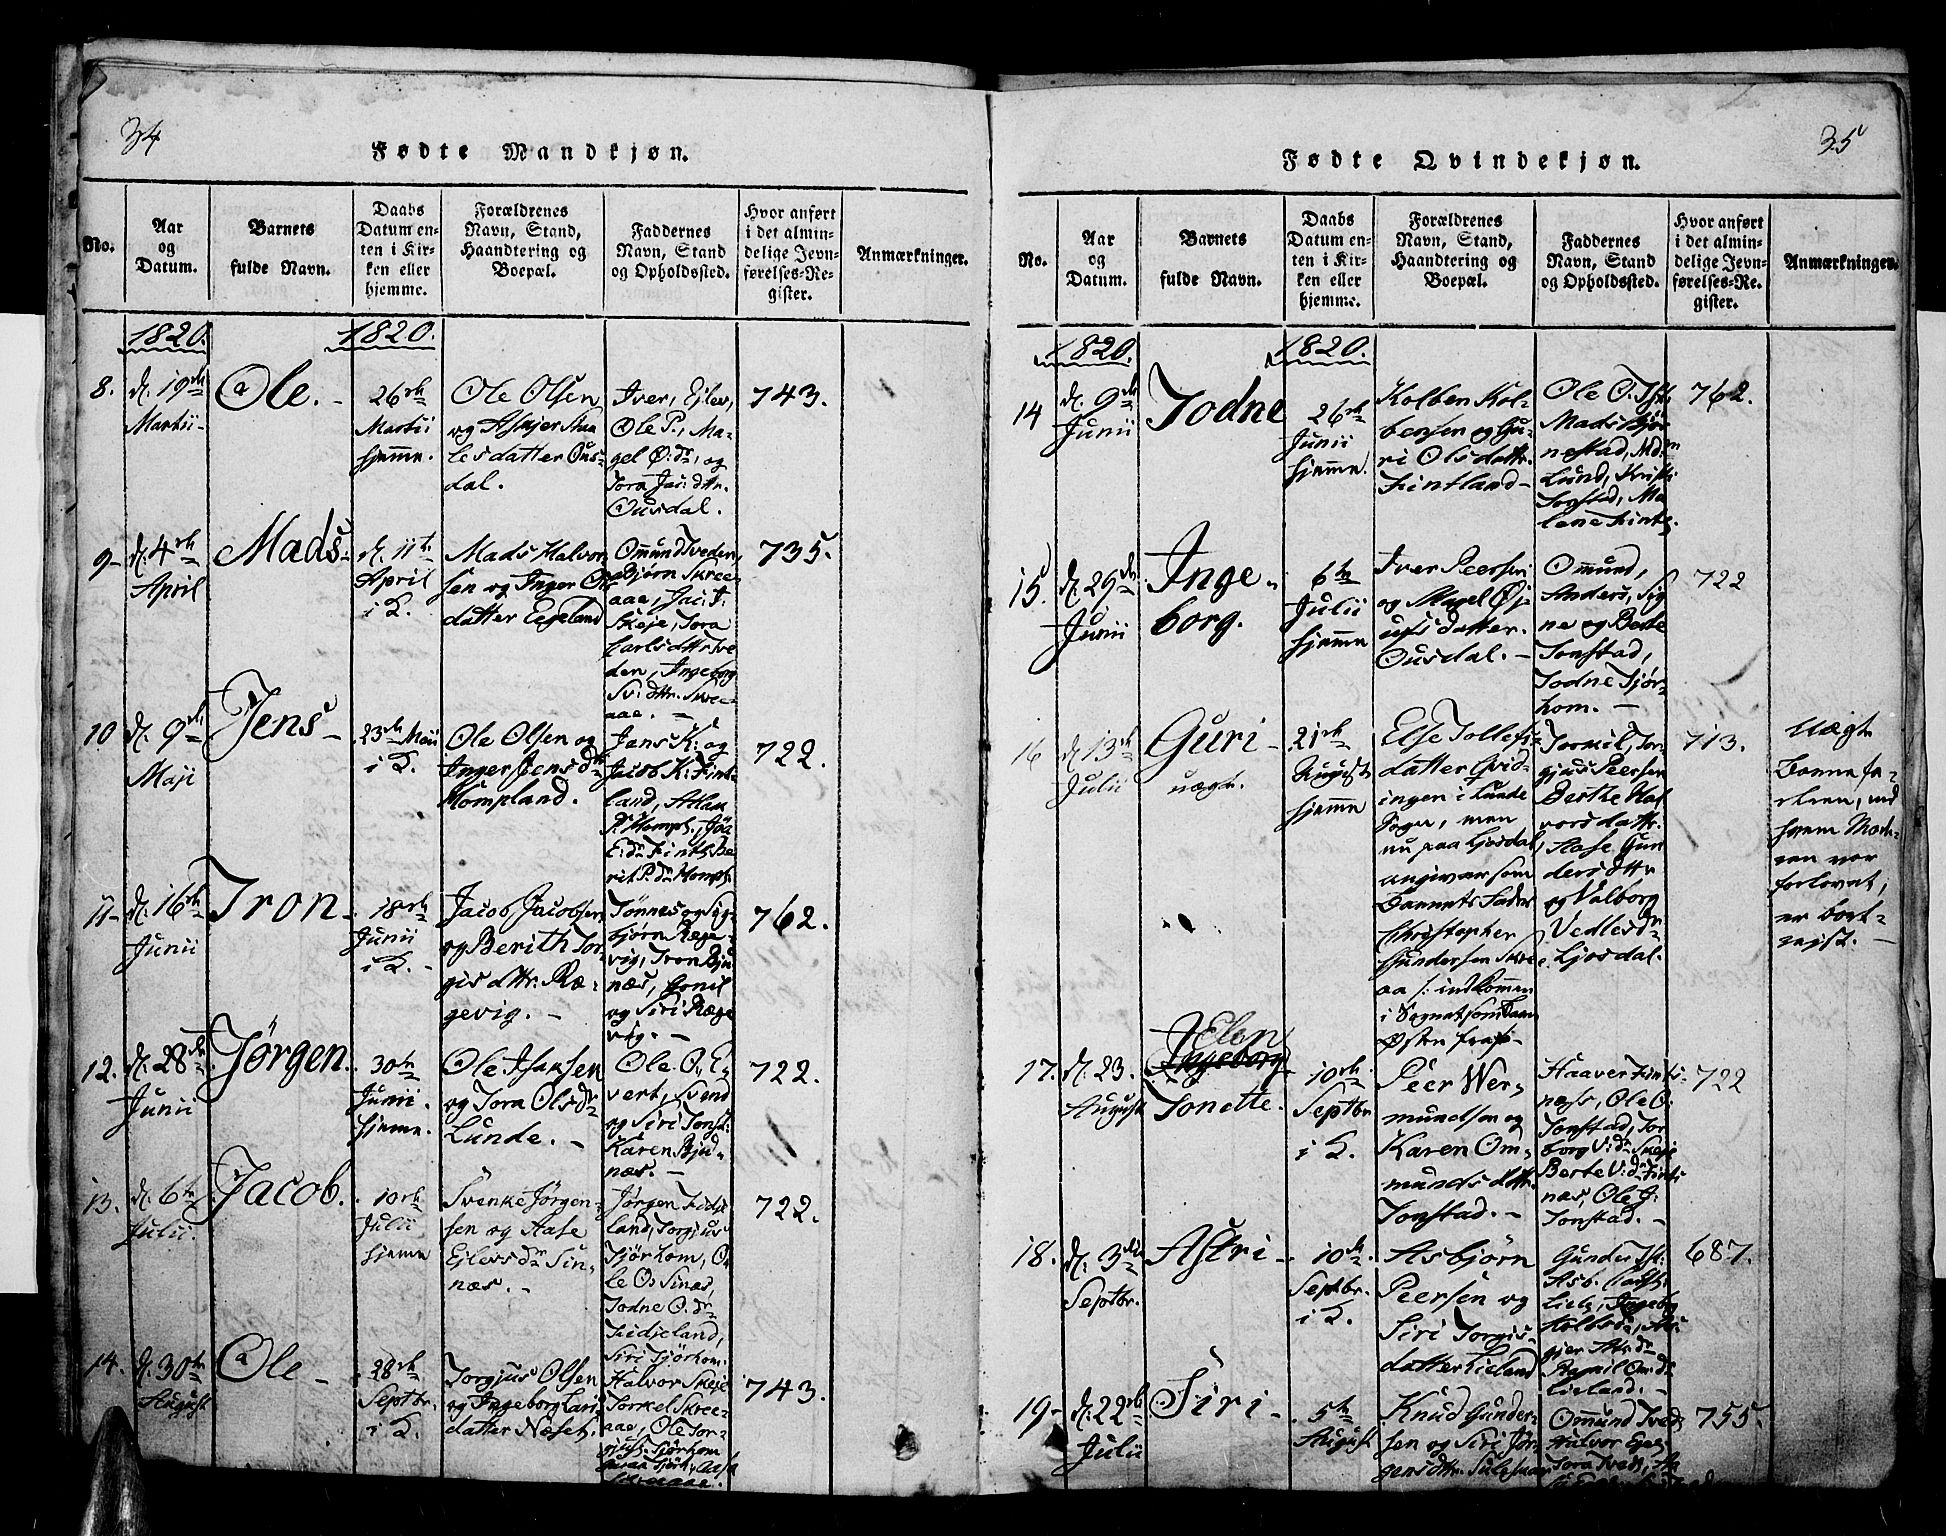 34
Fødte Mandkjøn.
No.
Aar
og
Datum.
Barnets
fulde Navn.
Daabs
Datum en-
ten i Kir-
ken eller
hjemme.
Forældrenes
Navn, Stand,
Haandtering og
Boepæl.
Faddernes
Navn, Stand
og Opholdssted.
Hvor anført
i det almin-
delige Jevn-
førelses-Re-
gister.
Anmærkninger.
1820.
1820.
8.
d. 19de
Martii
Ole.
26de
Martii
hjemme.
Ole Olsen
og Asgjer
lesdatter Ous-
dal.
Iver, Ejlev,
Ole P., Ma-
gel Ø:dr, og
Tora Jac: dttr.
Ousdal.
743.
9
d. 4de
April
Mads
d. 11te
April
i K.
Mads Halvor
sen og Inger
datter Eegeland
Omund Tveden,
Bjørn Skree-
aae, Jac: T:
Skeje, Tora
Carlsdttr Tve
den, Ingeborg
Sv: dttr. Skree-
aae.
735.
10
d. 9de
Maji
Jens
23de Maii
i K.
Ole Olsen og
Inger Jensdtr
Hompland.
Jans K: og
Jacob K: Fint-
land,
Homp:,
E:dr Fintl: Be
rit P:dr Homp:
722.
11
d. 16de
Junii
Tron
18de
Junii
i K.
Jacob Jacobsen
og Berith Tor
gisdttr. Ræ-
gevig.
Tønnes og Sig-
bjørn Ræge-
vig, Tron Bju-
næs, Gunil
og Siri Ræge
vig.
762.
12.
d. 28de
Junii
Jørgen.
30te
Junii.
hjemme.
Ole Isaksen
og Tora Olsdr
Lunde.
Ole O., E-
vert, Svend
og Siri Tonst:
Karen Bju-
næs.
722.
13.
d. 6te
Julii.
Jacob.
10de
Julii
hjemme
Svenke Jørgen-
sen og Aase
Ejlersdr Sin-
næs.
Jørgen Fidje
land, Torgjus
Tjørhom, O-
le Os Sinæs,
Todne O:dr
Fidjeland,
Siri Tjørhom.
722.
14.
d. 30te
August
Ole
28de
Septbr.
i K.
Torgjus Olsen
og Ingeborg Lars
datter Næset.
Halvor Skeje
Torkel Skree-
aae, Ole Tor-
gjus: Tjørhom
743.
35
Fødte Qvindekjøn.
No.
Aar
og
Datum.
Barnets
fulde Navn.
Daabs
Datum en-
ten i Kir-
ken eller
hjemme.
Forældrenes
Navn, Stand,
Haandtering og
Boepæl.
Faddernes
Navn, Stand
og Opholdssted.
Hvor anført
i det almin-
delige Jevn-
førelses-Re-
gister.
Anmærkninger.
1820.
1820.
14
d. 9de
Junii
Todne
26de
Junii
hjemme.
Kolben Kol-
bensen og Gu-
ri Olsdattr.
Fintland
Ole O.
Mads Bjør
nestad,
Lund,
Tonstad, Ma
lene Fintl:
762.
15.
d. 29de
Junii
Inge-
borg.
6te
Julii
hjemme
Iver Peersen
og Magel Øj
ulfsdatter.
Ousdal.
Omund,
Anders, Sig
ne og Berte
Tonstad,
Todne Tjør-
hom.
722
16
d. 13de
Julii
Guri
uægte.
21de
August
hjemme
Else Tollefs
datter Qvid-
ingen i Lunde
Sogn, men
nu paa Ljosdal,
angiver som
Barnets Fader
Christopher
Gundersen Skree
aa /: indkommen
i Sognet som
Østen fra
Torkil, Tor-
gjus Peersen
Berthe Hal
vorsdattr.
Aase Gun
dersdttr
og Valborg
Vedlesdr
Ljosdal.
713.
Uægte
Barnefa-
deren, med
hvem Mode-
ren var
forlovet,
er bort-
rejst.
17.
d. 23.
August
Elen
Ingeborg
Tonette.
10de
Septbr
i K.
Peer Wer-
mundsen og
Karen Om-
mundsdttr.
Tonstad.
Haaver Fints-
næss, Ole O:
Tonstad, Tor
borg V:dr Skeje
Berte V:dr Fints
næs, Ole G:
Tonstad.
722
18.
d. 3die
Septbr.
Astri
10de
Septbr.
i K.
Asbjørn
Peersen og
Siri Torgis-
datter Lieland
Gunder
Asb.
Liel:, Ingeborg
Kolbsdr,
Ragnil Om:dr
Lieland.
687.
19
d. 22de
Julii
Siri
5te
August
Knud Gunder-
sen og Siri Jør-
gensdttr. Suleskar
Omund Tved:
Halvor Egel:
Tora Tved:,
755.